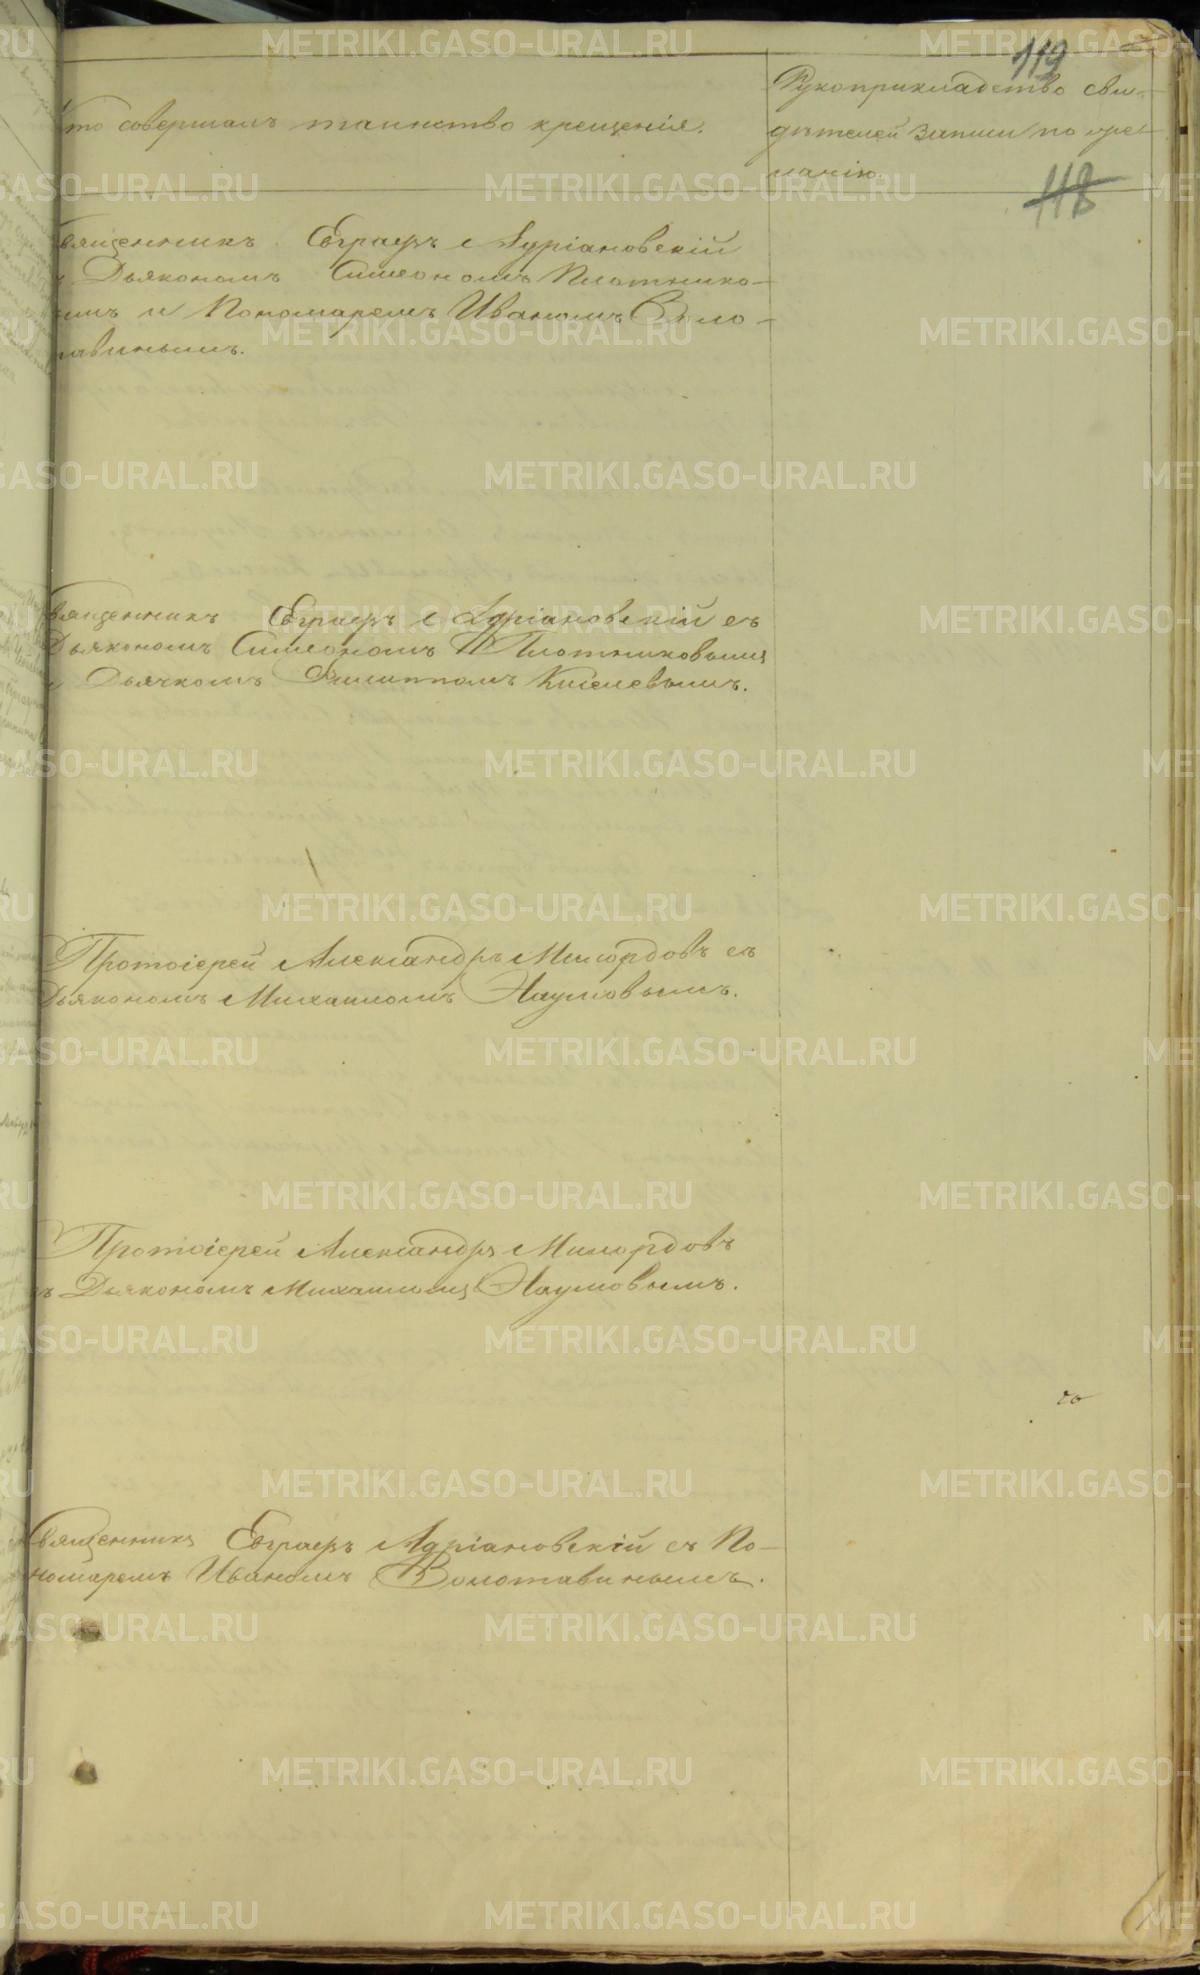 119
Кто совершалъ таинство крещенія.
Рукоприкладство сви-
дѣтелей записи по же-
ланію.
118
Священникъ Евграфъ Адріановскій
съ Дьякономъ Симеономъ Плотнико-
вымъ и Пономаремъ Иваномъ Воло-
тавинымъ.
Священникъ Евграфъ Адріановскій съ
Дьякономъ Симеономъ Плотниковымъ
и Дьячкомъ Филиппомъ Киселевымъ.
Протоіерей Александръ Милордовъ съ
Дьякономъ Михаиломъ Наумовымъ.
Протоіерей Александръ Милордовъ
съ Дьякономъ Михаиломъ Наумовымъ.
Священникъ Евграфъ Адріановскій съ По-
номаремъ Иваномъ Волотавинымъ.
METRIKI.GASO-URAL.RU